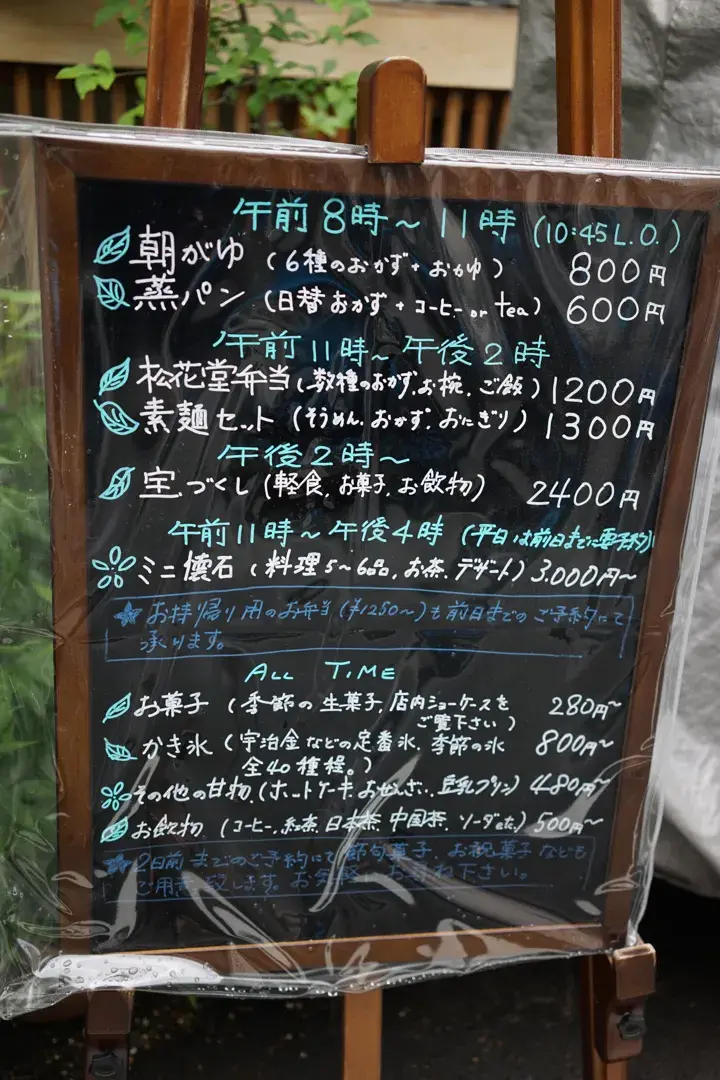 午前8時～11時(10:45L.O.)
朝がゆ(6種のおかず+おかゆ)800円
蒸パン(日替おかず+コーヒーor tea)600円
午前11時～午後2時
松花堂弁当(数種のおかず、お椀、ご飯)1200円
素麺セット(そうめん、おかず、おにぎり)1300円
午後2時～
宝づくし(軽食、お菓子、お飲物)2400円
午前11時～午後4時(平日は前日までに要予約)
ミニ懐石(料理5～6品、お茶、デザート)3.000円～
お持帰り用のお弁当(¥1250～)も前日までのご予約にて
承ります。
ALL TIME
お菓子(季節の生菓子、店内ショーケースを
ご覧下さい)280円～
かき氷(宇治金などの定番氷、季節の氷
全40種程。)800円～
その他の甘物(ホットケーキ、おぜんざい、豆乳プリン)480円～
お飲物(コーヒー、紅茶、日本茶、中国茶、ソーダetc.)500円～
2日前までのご予約にて節句菓子、お祝菓子なども
ご用意致します。お気軽にお尋ね下さい。